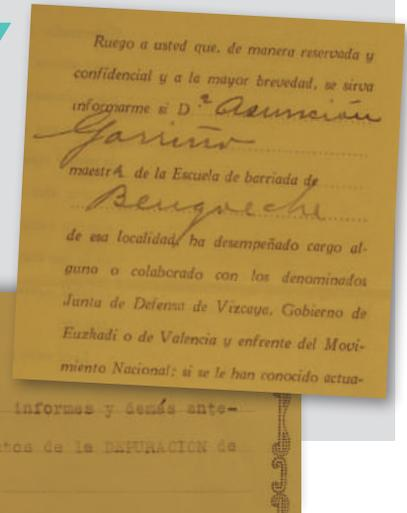 Ruego a usted que, de manera reservada y
confidencial y a la mayor brevedad, se sirva
informarme si D.ª Asunción
Garriño
maestrA de la Escuela de barriada de
Bengoeche
de esa localidad, ha desempeñado cargo al-
guno o colaborado con los denominados
Junta de Defensa de Vizcaya, Gobierno de
Euzkadi o de Valencia y enfrente del Movi-
miento Nacional; si se le han conocido actua-
informes y demás ante-
tos de la DEPURACION de